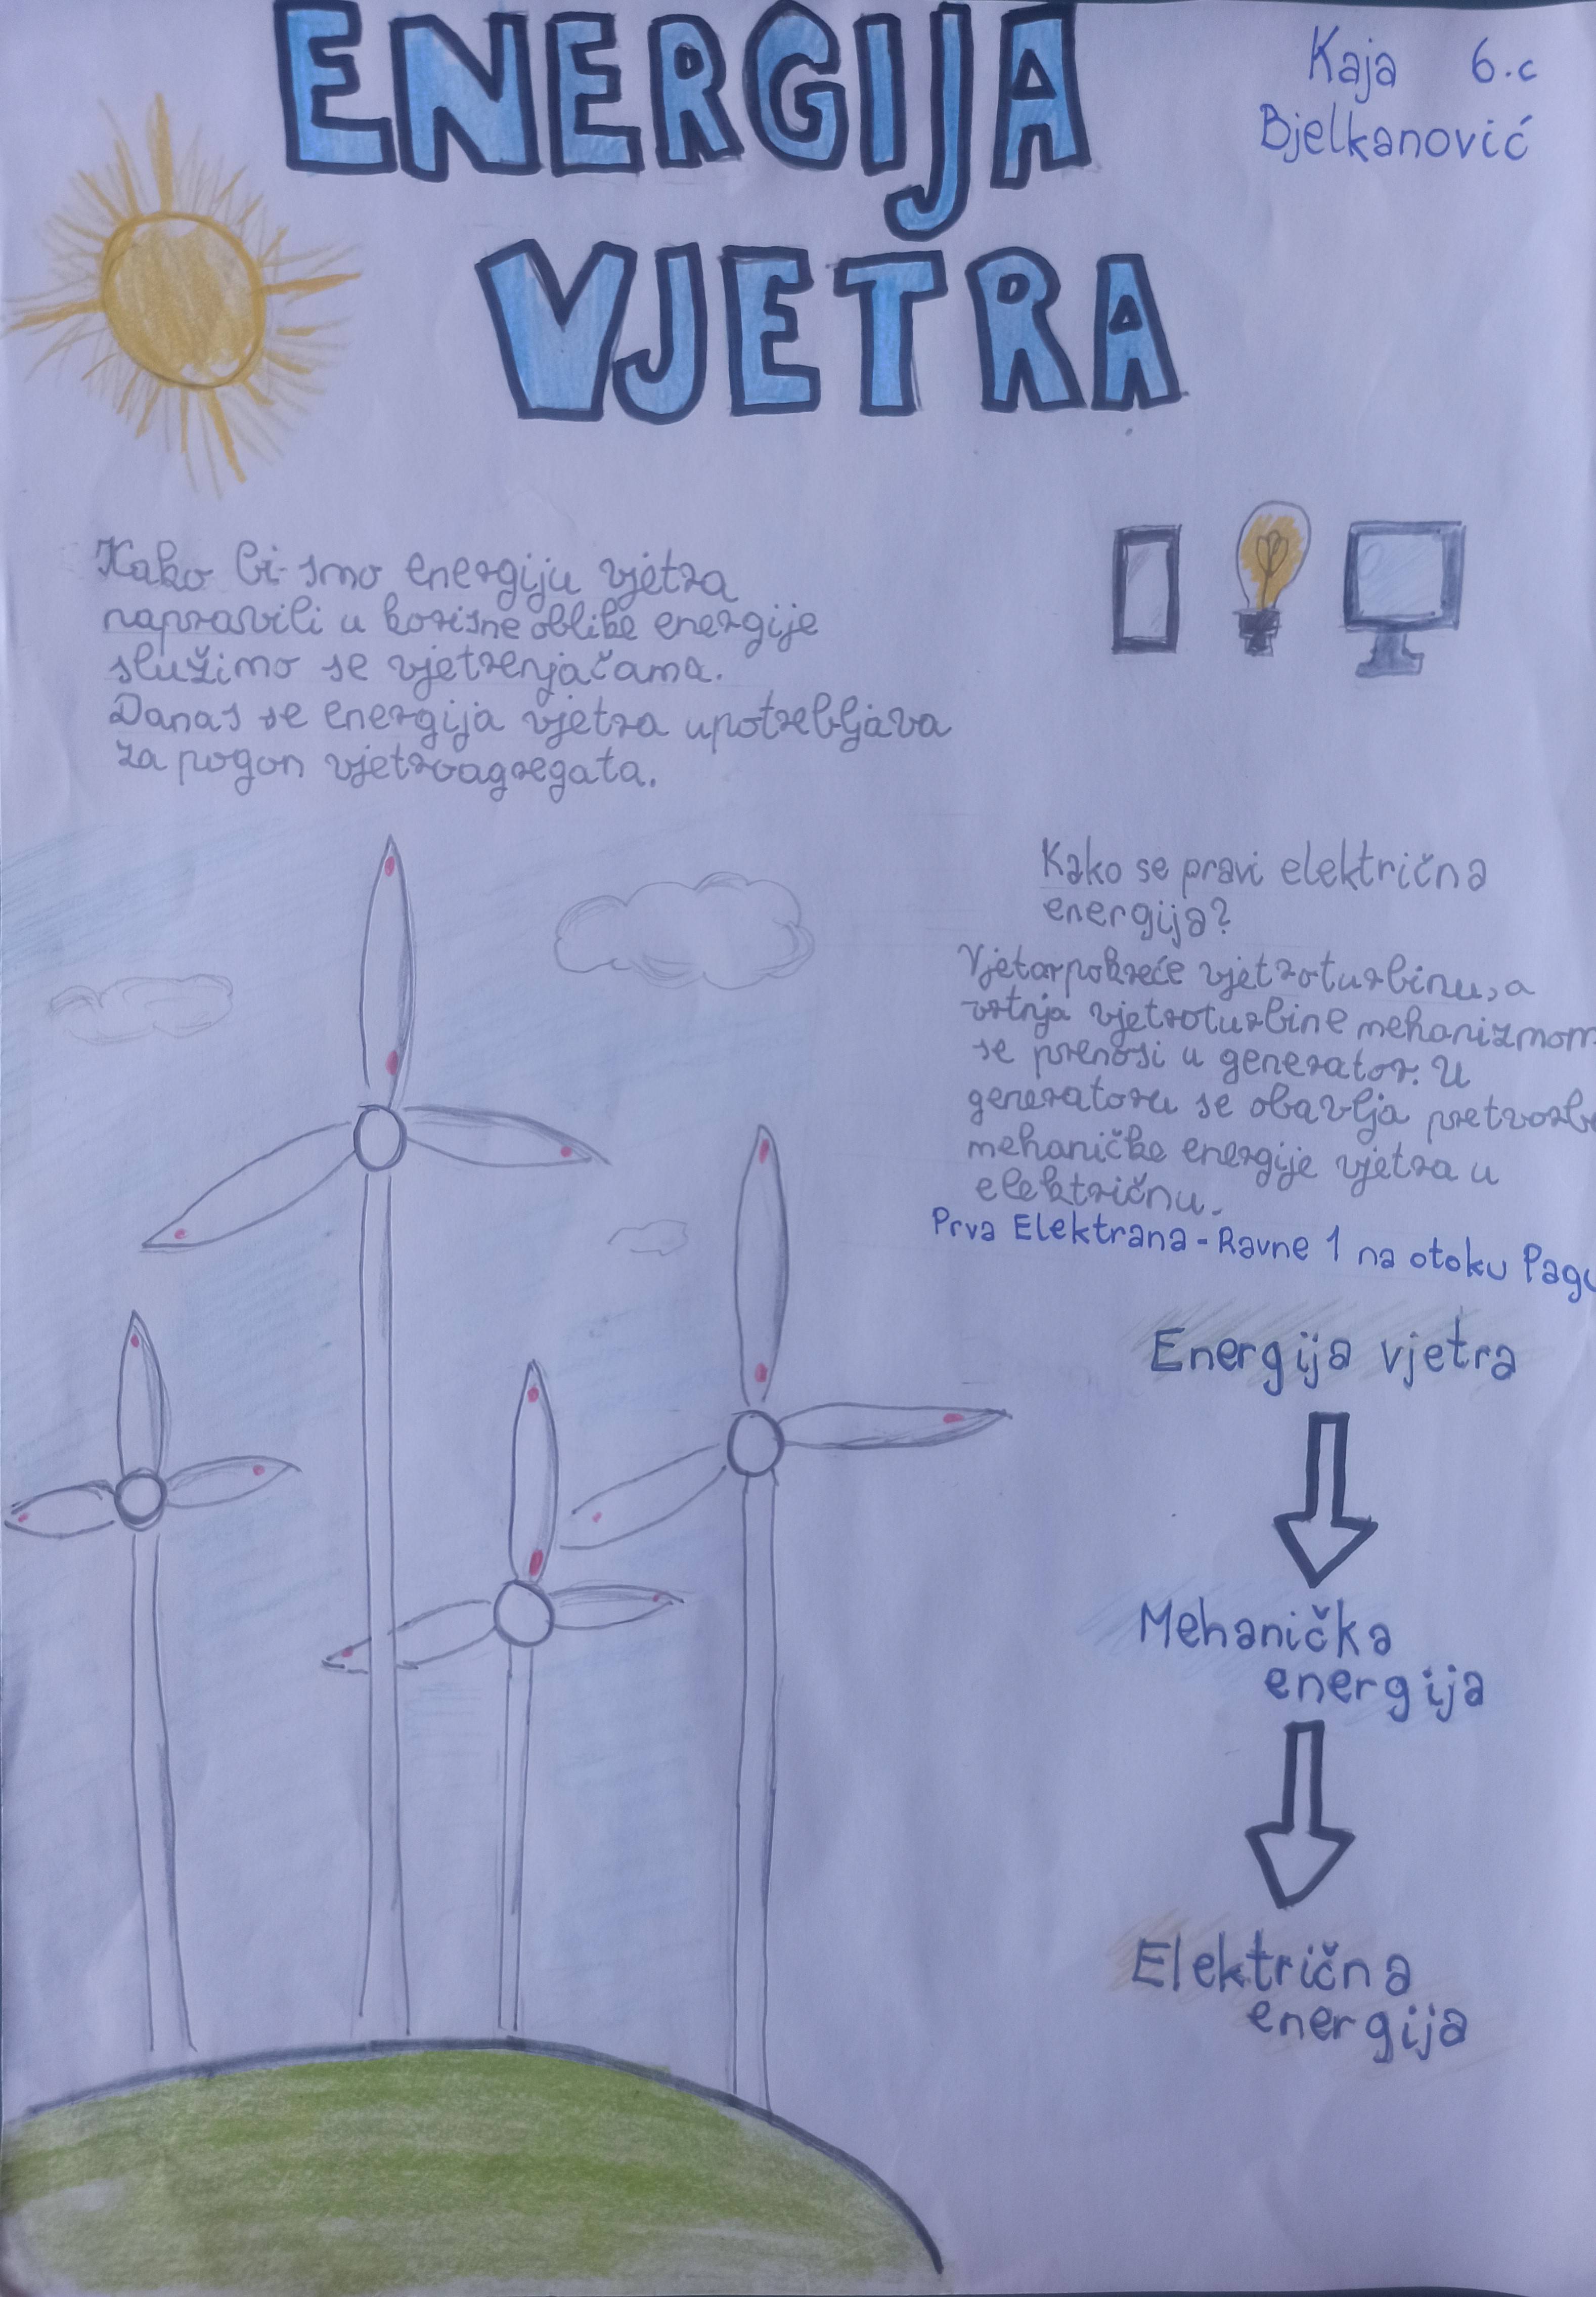 ENERGIJA
VJETRA
Kaja 6.c
Bjelkanović
Kako bi smo energiju vjetra
napravili u korisne oblike energije
služimo se vjetrenjačama.
Danas se energija vjetra upotrebljava
za pogon vjetroagregata.
Kako se pravi električna
energija?
Vjetar pokreće vjetroturbinu, a
vrtnja vjetroturbine mehanizmom
se prenosi u generator. U
generatoru se obavlja pretvorba
mehaničke energije vjetra u
električnu.
Prva Elektrana - Ravne 1 na otoku Pagu
Energija vjetra
Mehanička
energija
Električna
energija